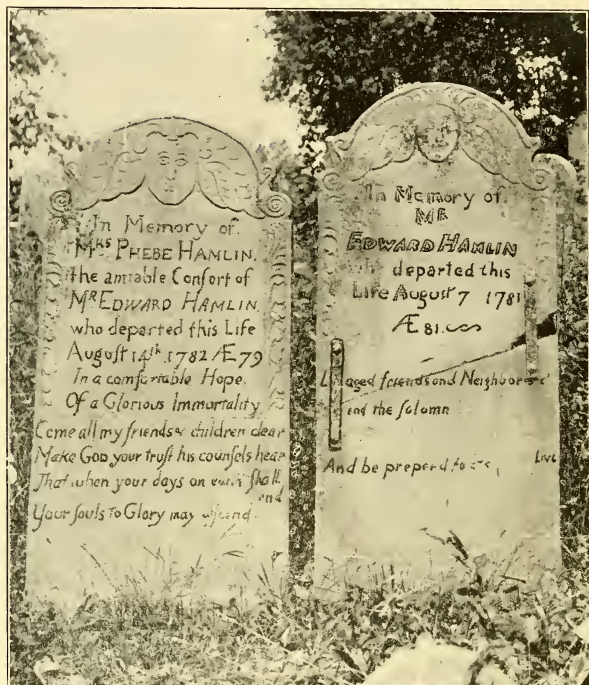 In Memory of
Mrs PHEBE HAMLIN.
the amiable Conſort of
Mr EDWARD HAMLIN.
who departed this Life
Auguſt 14th 1782 Æ 79
In a comfortable Hope
Of a Glorious Immortality
Come all my friends & children dear
Make GOD your truſt his counſels hear
That when your days on earth ſhall
end
Your ſouls To Glory may aſcend.
In Memory of
MR
EDWARD HAMLIN
who departed this
Life August 7 1781
Æ 81.
aged friends and Neighbors
the ſolamn
And be preperd to
Live